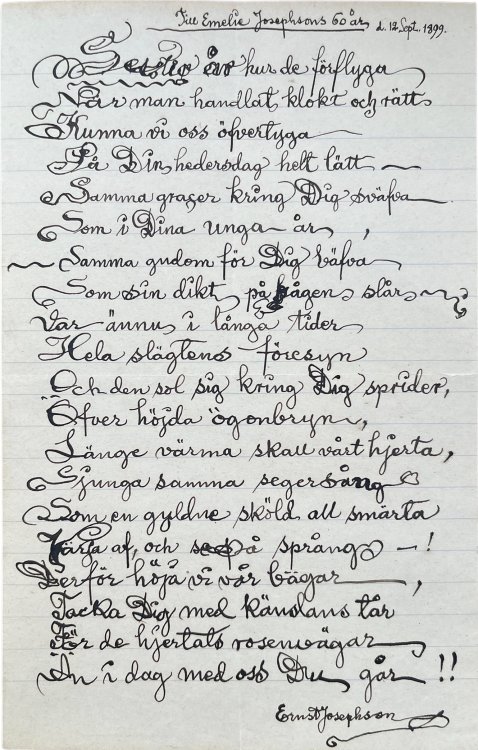 Till Emelie Josephsons 60 år d. 12 Sept. 1899.
Sextio år hur de förflyga
När man handlat klokt och rätt
Kunna vi oss öfvertyga
På Din hedersdag helt lätt
Samma gracer kring Dig sväfva
Som i Dina unga år,
Samma gudom för Dig bäfva
Som sin dikt på bågens slår
Var ännu i långa tider
Hela slägtens föresyn
Och den sol sig kring Dig sprider,
Öfver höjda ögonbryn,
Länge värma skall vårt hjerta,
Sjunga samma segersång
Som en gyldne sköld all smärta
Värja af, och på språng —!
Derför höja vi vår bägar,
Tacka Dig med känslans tår
För de hjertats rosenvägar
In i dag med oss Du går!!
Ernst Josephson